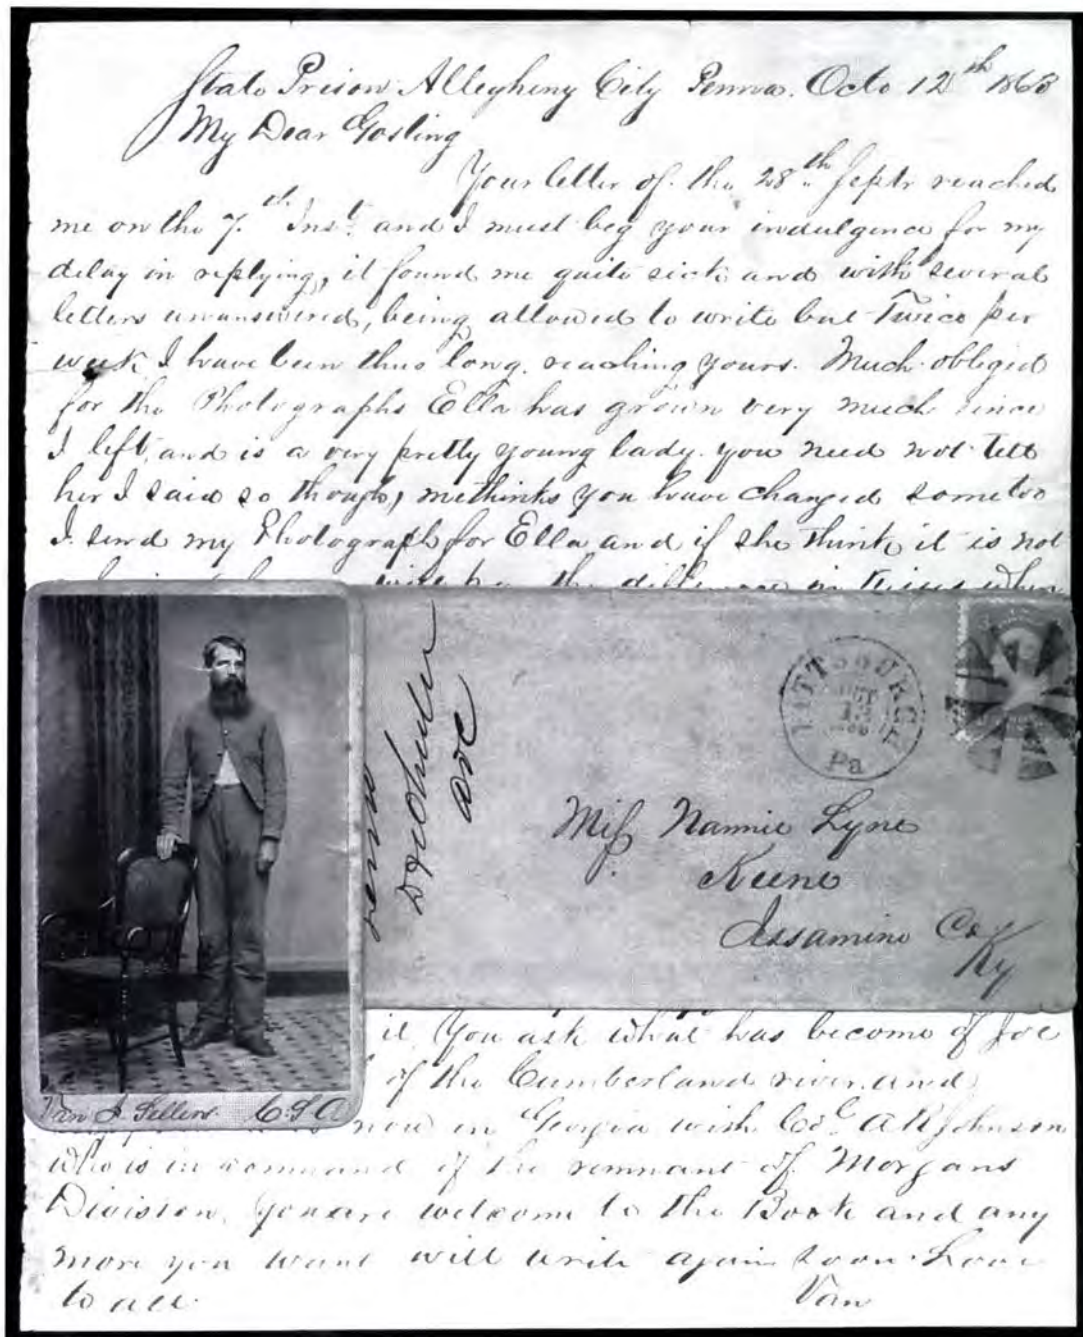 State Prison Allegheny City Penna. Octo 12th 1863
My Dear Gosling
Your letter of the 28th Septr reached
me on the 7th Inst. and I must beg your indulgence for my
delay in replying, it found me quite sick and with several
letters unanswered, being allowed to write but Twice per
week I have been thus long reaching yours. Much obliged
for the Photographs Ella has grown very much since
I left, and is a very pretty young lady. you need not tell
her I said so though, methinks you have changed some too
I send my Photograph for Ella and if she think it is not
the difference in when
PITTSBURGH
OCT
13
Pa
Miss Nannie Lyne
Keene
Jessamine Co
Ky
Ave
it You ask what has become of Joe
of the Cumberland river and
now in Georgia with Col A R Johnson
who is in command of the remnant of Morgans
Division, you are welcome to the Book and any
more you want will write again soon Love
to all.
Van
Van J Sellers C.S.A